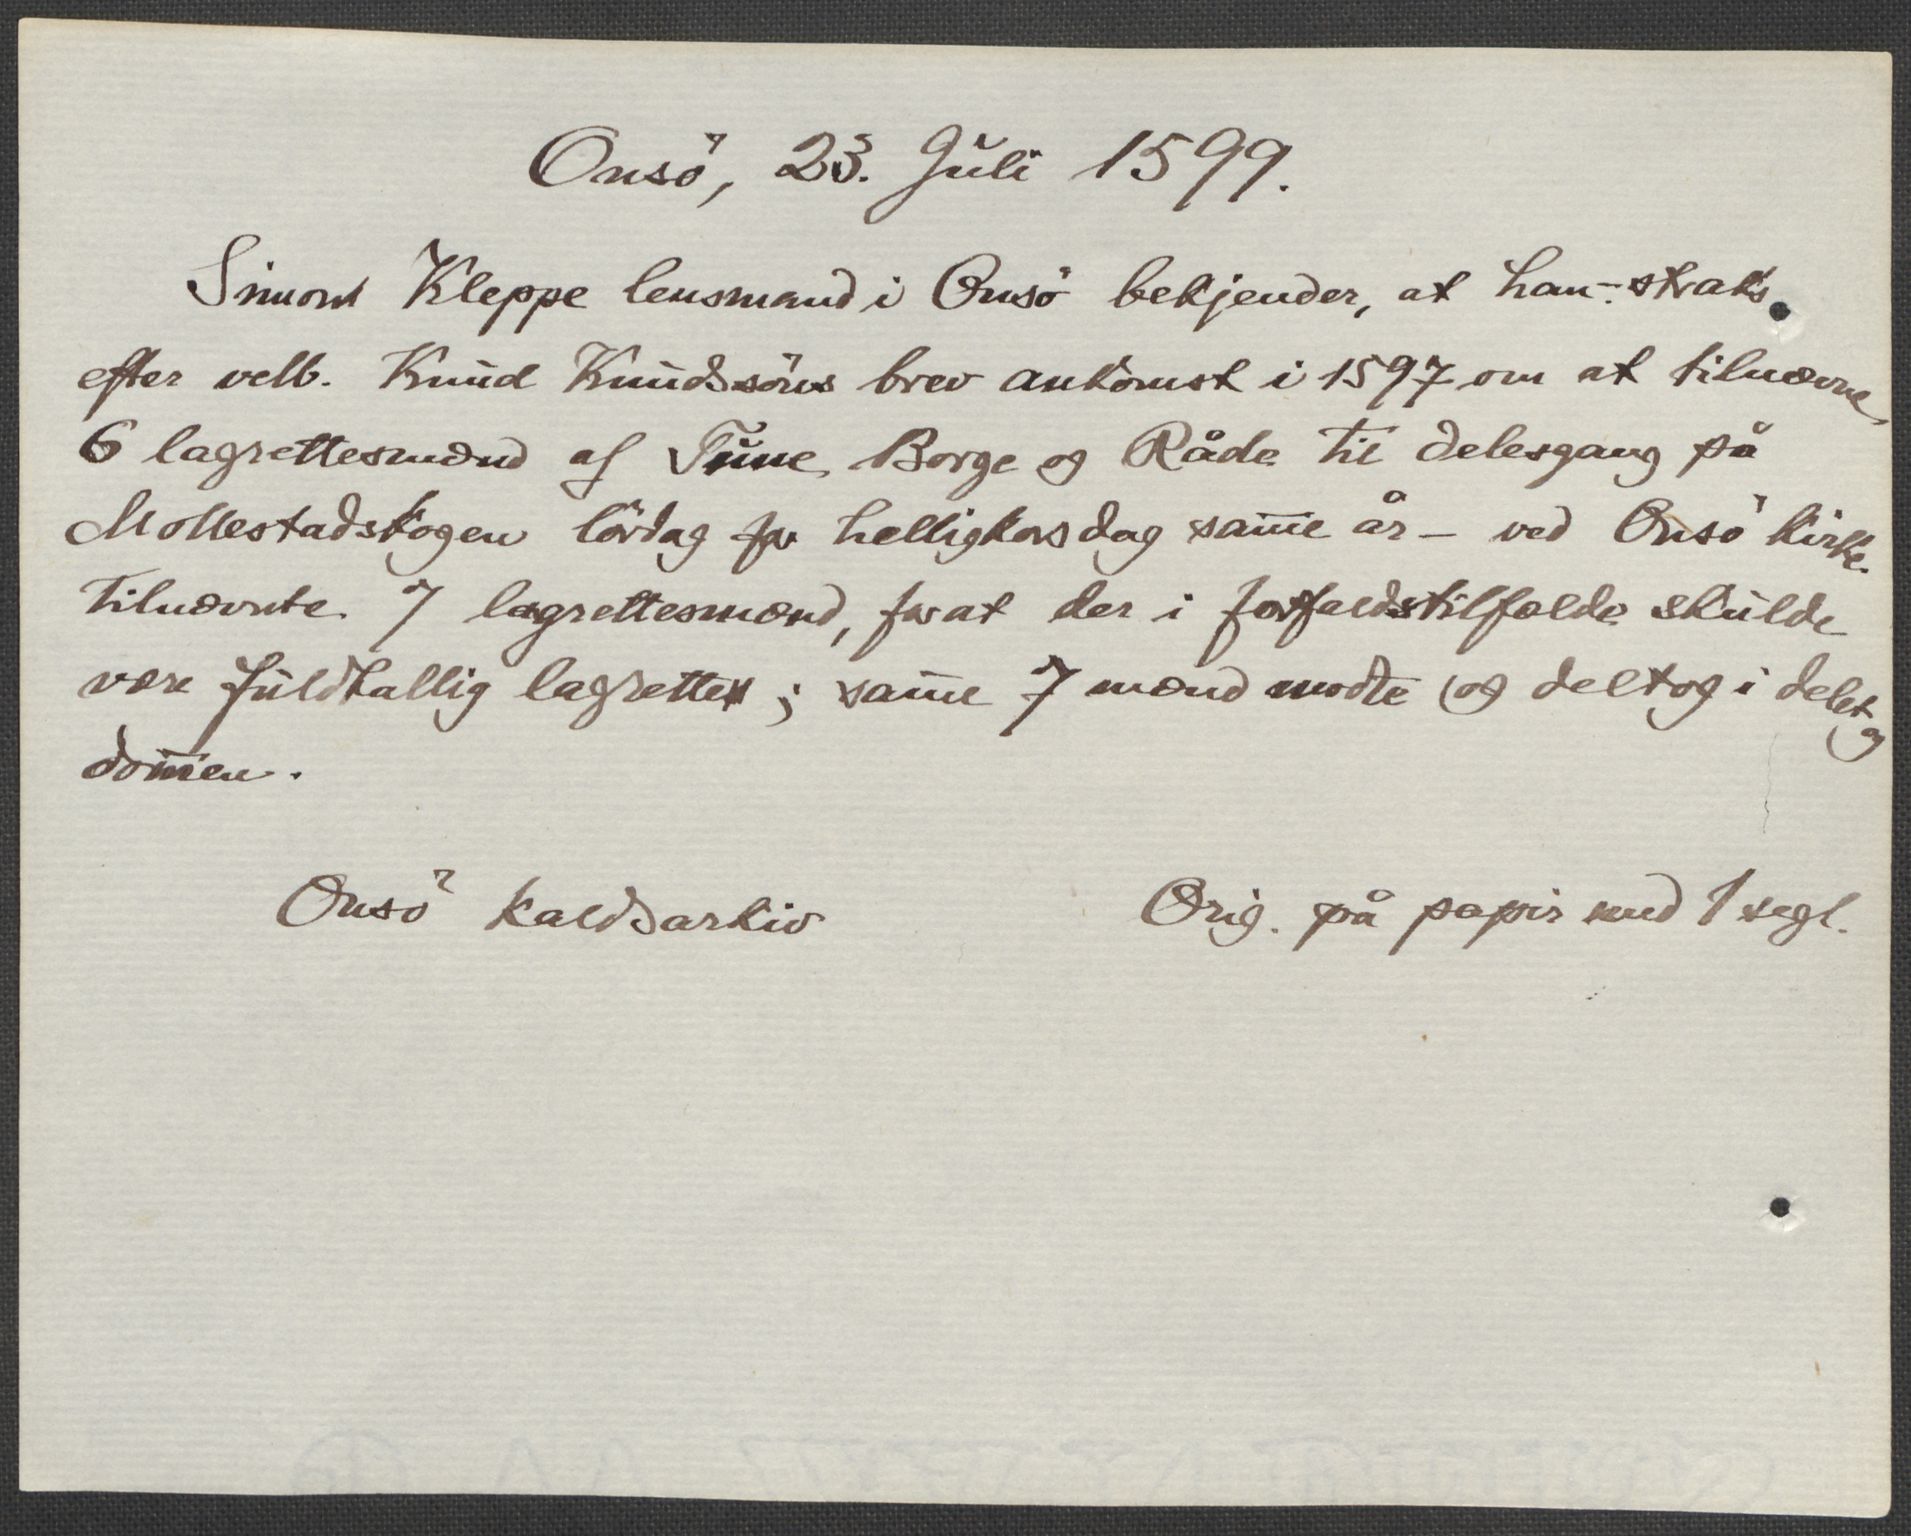 Onsö, 23. Juli 1599.
Simond Kleppe lensmand i Onsö bekjender, at han - straks
efter velb. Knud Knudssöns brev ankomst i 1597 om at tilnævne
6 lagrettesmænd af Tune, Borge og Råde til delesgang på
Mollestadskogen lördag for helligkorsdag sam̄e år - ved Onsö kirke
tilnævnte 7 lagrettesmænd, for at der i forfaldstilfælde skulde
være fuldtallig lagrette; sam̄e 7 mænd mödte og deltog i delet og
dom̄en.
Onsö kaldsarkiv
Orig. på papir med 1 segl.